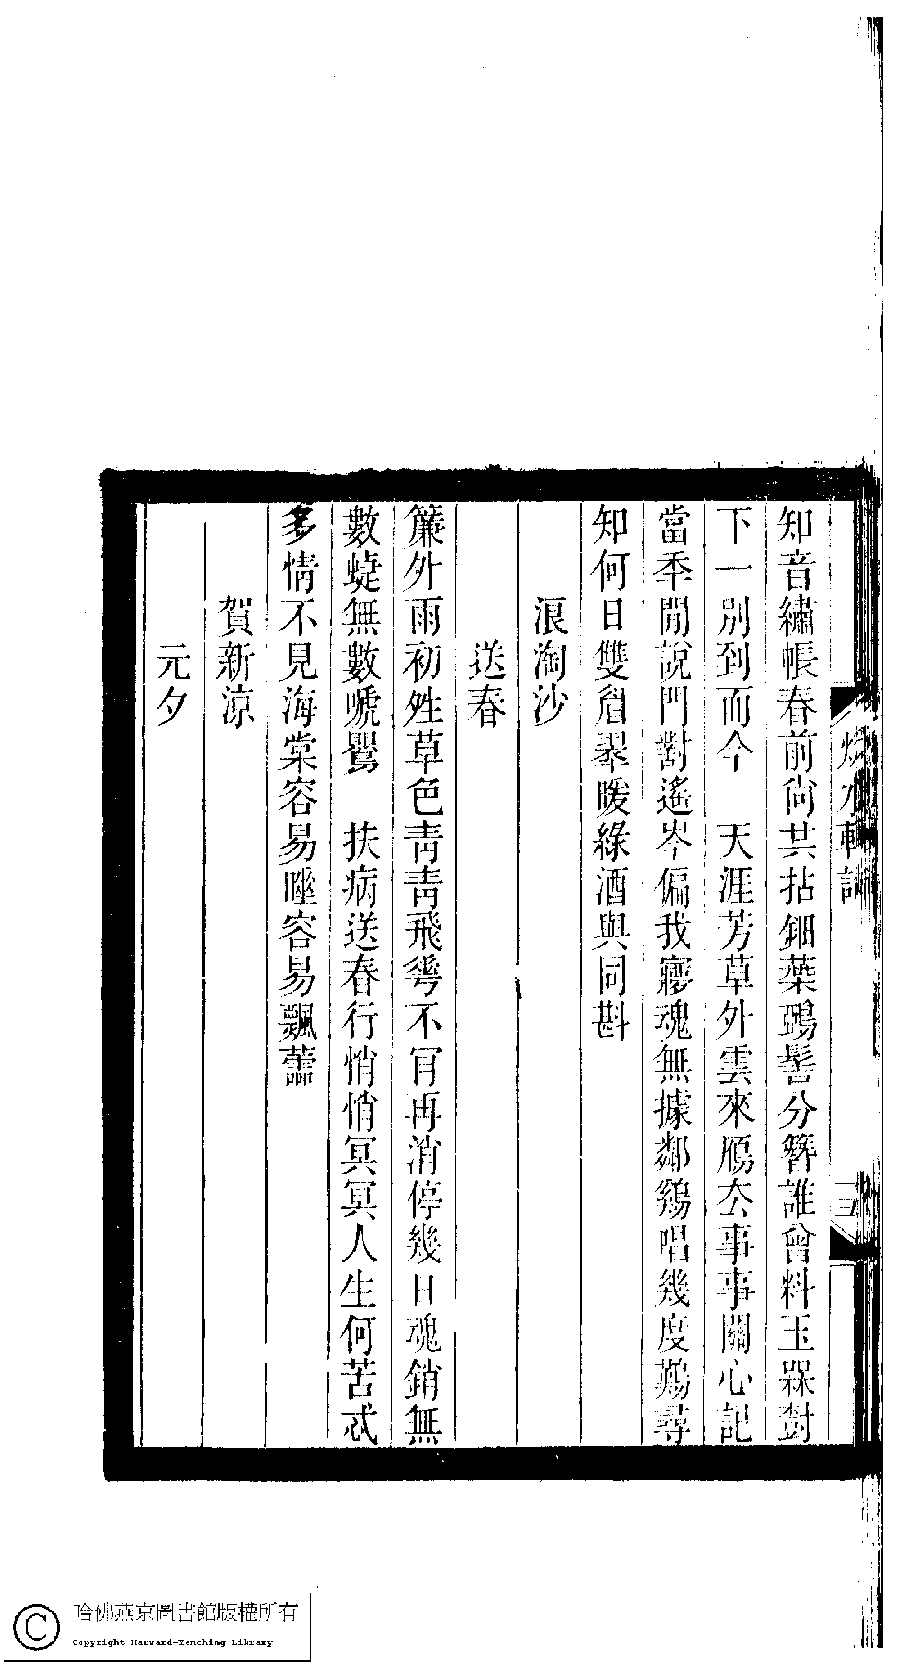 知音繡帳春前尙共拈鈿藥鵶髻分簪誰曾料玉槑對
下一別到而今　天涯芳草外雲來鴈厺事事關心記
當秊閒說門對遙岑偏我寢魂無據鄰鷄唱幾度鷄尋
知何日雙眉翠暖綠酒與同斟
浪淘沙
送春
簾外雨初姓草色靑靑飛雩不肎再消停幾日魂銷無
數蜨無數號鸎　扶病送春行悄悄冥冥人生何苦忒
多情不見海棠容易睡容易飄蘦
賀新涼
元夕
軒詞
三
哈佛燕京圖書館版權所有
Copyright Harvard-Yenching Library